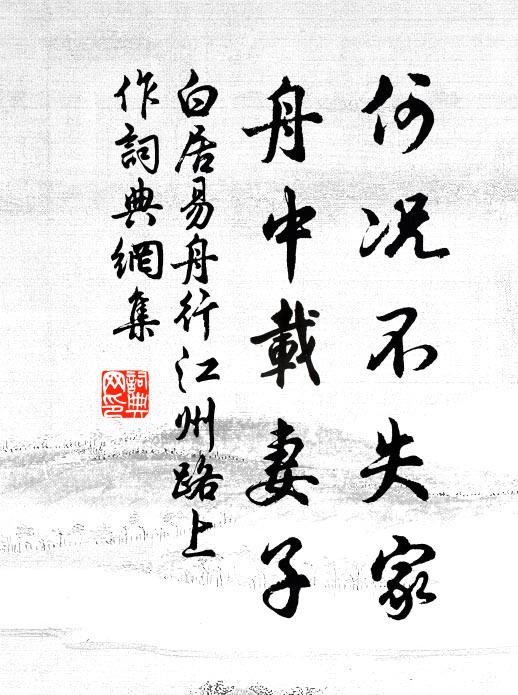 何况不失家
舟中載妻子
白居易舟行江州路上
作詞典網集
詞典
网印